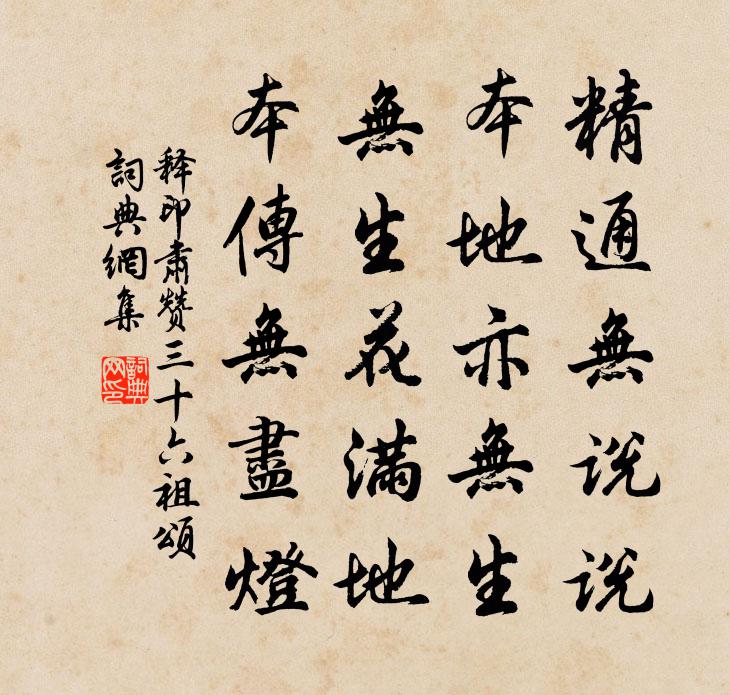 精通無説説
本地亦無生
無生花滿地
本傳無盡燈
释印肃赞三十六祖頌
詞典網集
詞典网印